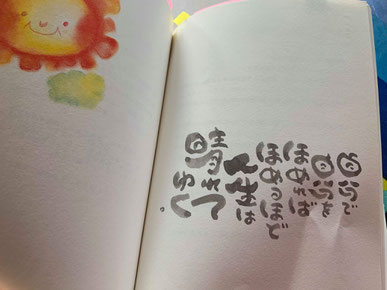 自分で
自分を
ほめれば
ほめるほど
人生は
晴れて
ゆく。